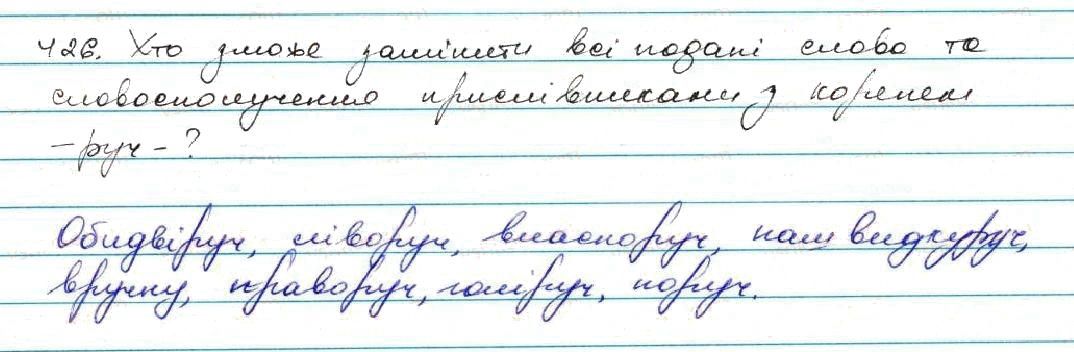 426. Хто зможе замінити всі подані слова та
словосполучення прислівниками з коренем
-руч-?
Обидвіруч, ліворуч, власноруч, нашвидкуруч,
вручну, праворуч, голіруч, поруч.